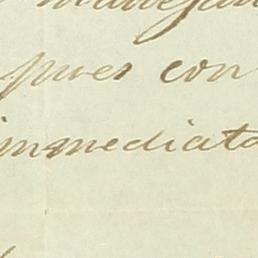 pues con
immediata